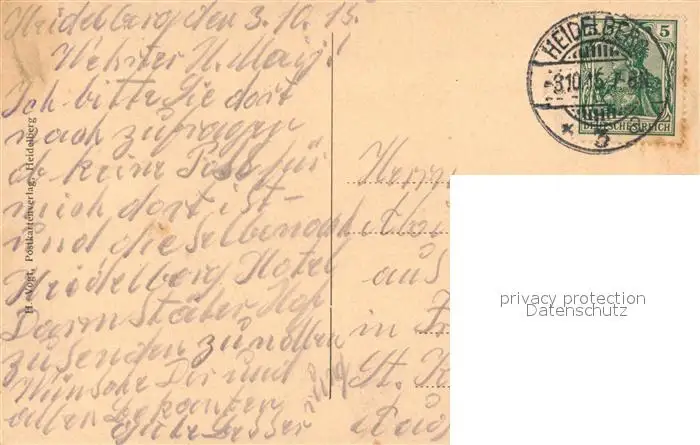 Heidelberg den 3.10.15.
Wehrter H. May!
Ich bitte Sie dort
nach zufragen
ob keine Post für
mich dort ist-
und die selbe nach
Heidelberg Hotel
Darmstäter Hof
zu senden zu wollen
Wünsche Dir und
allen Bekanten
gute
H. Vogt, Postkartenverlag, Heidelberg
HEIDELBERG
-3.10.15. 7-8
* 5
5
DEUTSCHES REICH
Herrn
aus
in
St. K
privacy protection
Datenschutz